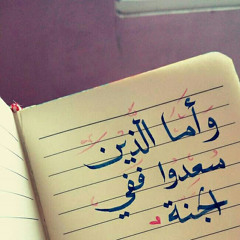 وَأَما الَّذين
سُعِدُوا فَفي
الجنة